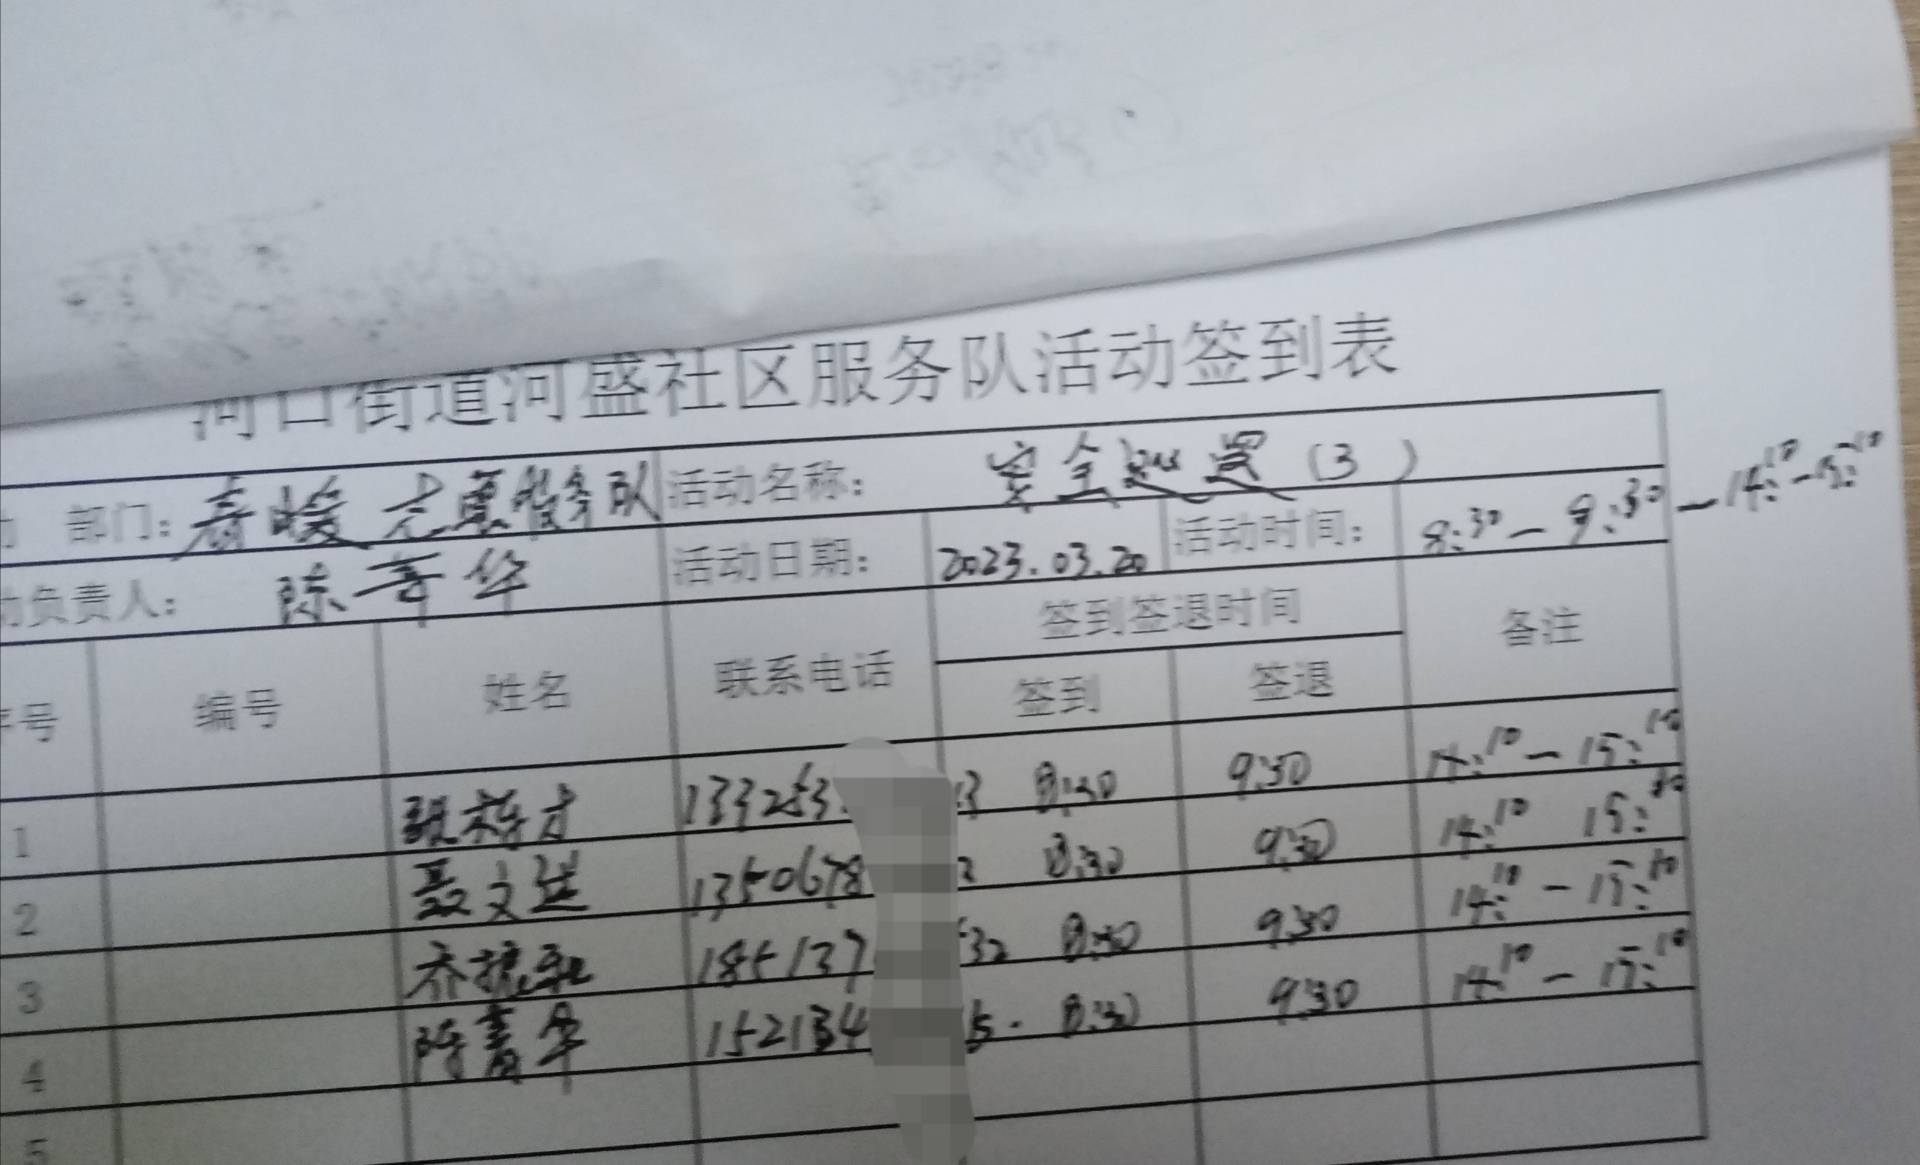 河口街道河盛社区服务队活动签到表
动 部门: 春暖志愿服务队 活动名称: 安全巡逻 (3)
动负责人: 陈菁华 活动日期: 2023.03.20 活动时间: 8:30-9:30-14:10-15:10
序号 编号 姓名 联系电话 签到签退时间 备注
签到 签退
1 133253 3 8:30 9:30 14:10-15:10
2 聂文 1350678 2 8:30 9:30 14:10 15:10
3 乔振 185137 32 8:30 9:30 14:10-15:10
4 陈菁华 152134 15. 8:30 9:30 14:10-15:10
5